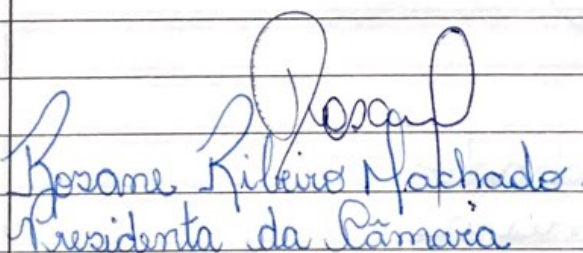 Rosane
Rozane Ribeiro Machado.
Presidenta da Câmara